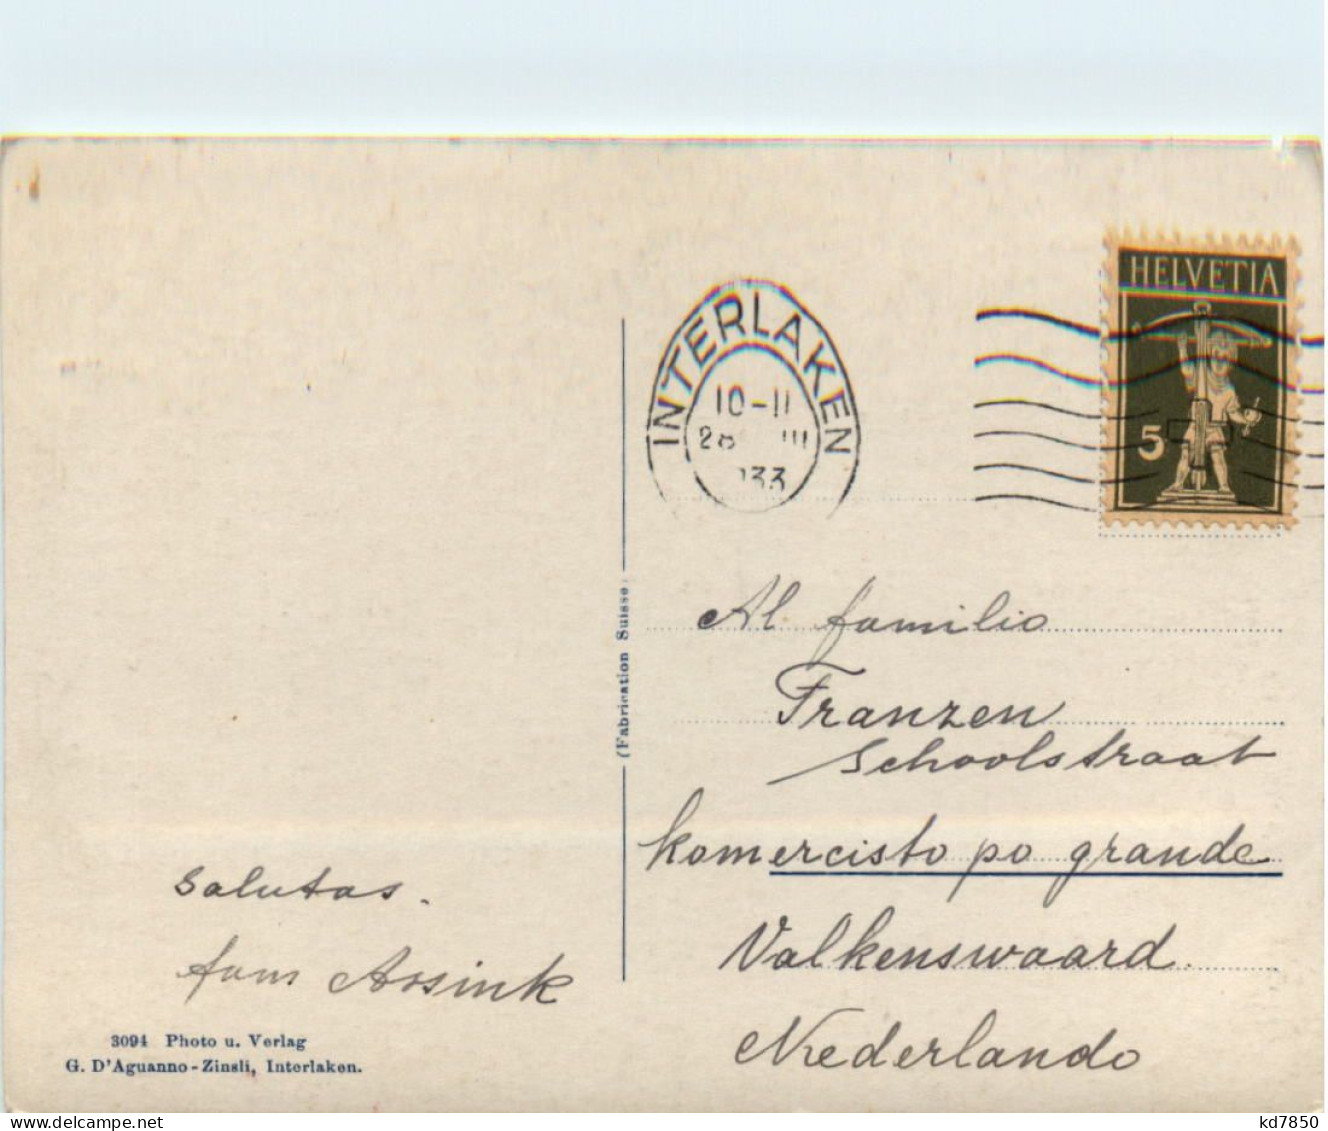 HELVETIA
5
INTERLAKEN
10-11
28 III
33
(Fabrication Suisse)
Al familio
Franzen
Schoolstraat
komercisto po grande
Valkenswaard
Nederlando
Salutas.
fam Assink
3094 Photo u. Verlag
G. D'Aguanno-Zinsli, Interlaken.
delcampe.net
kd7850